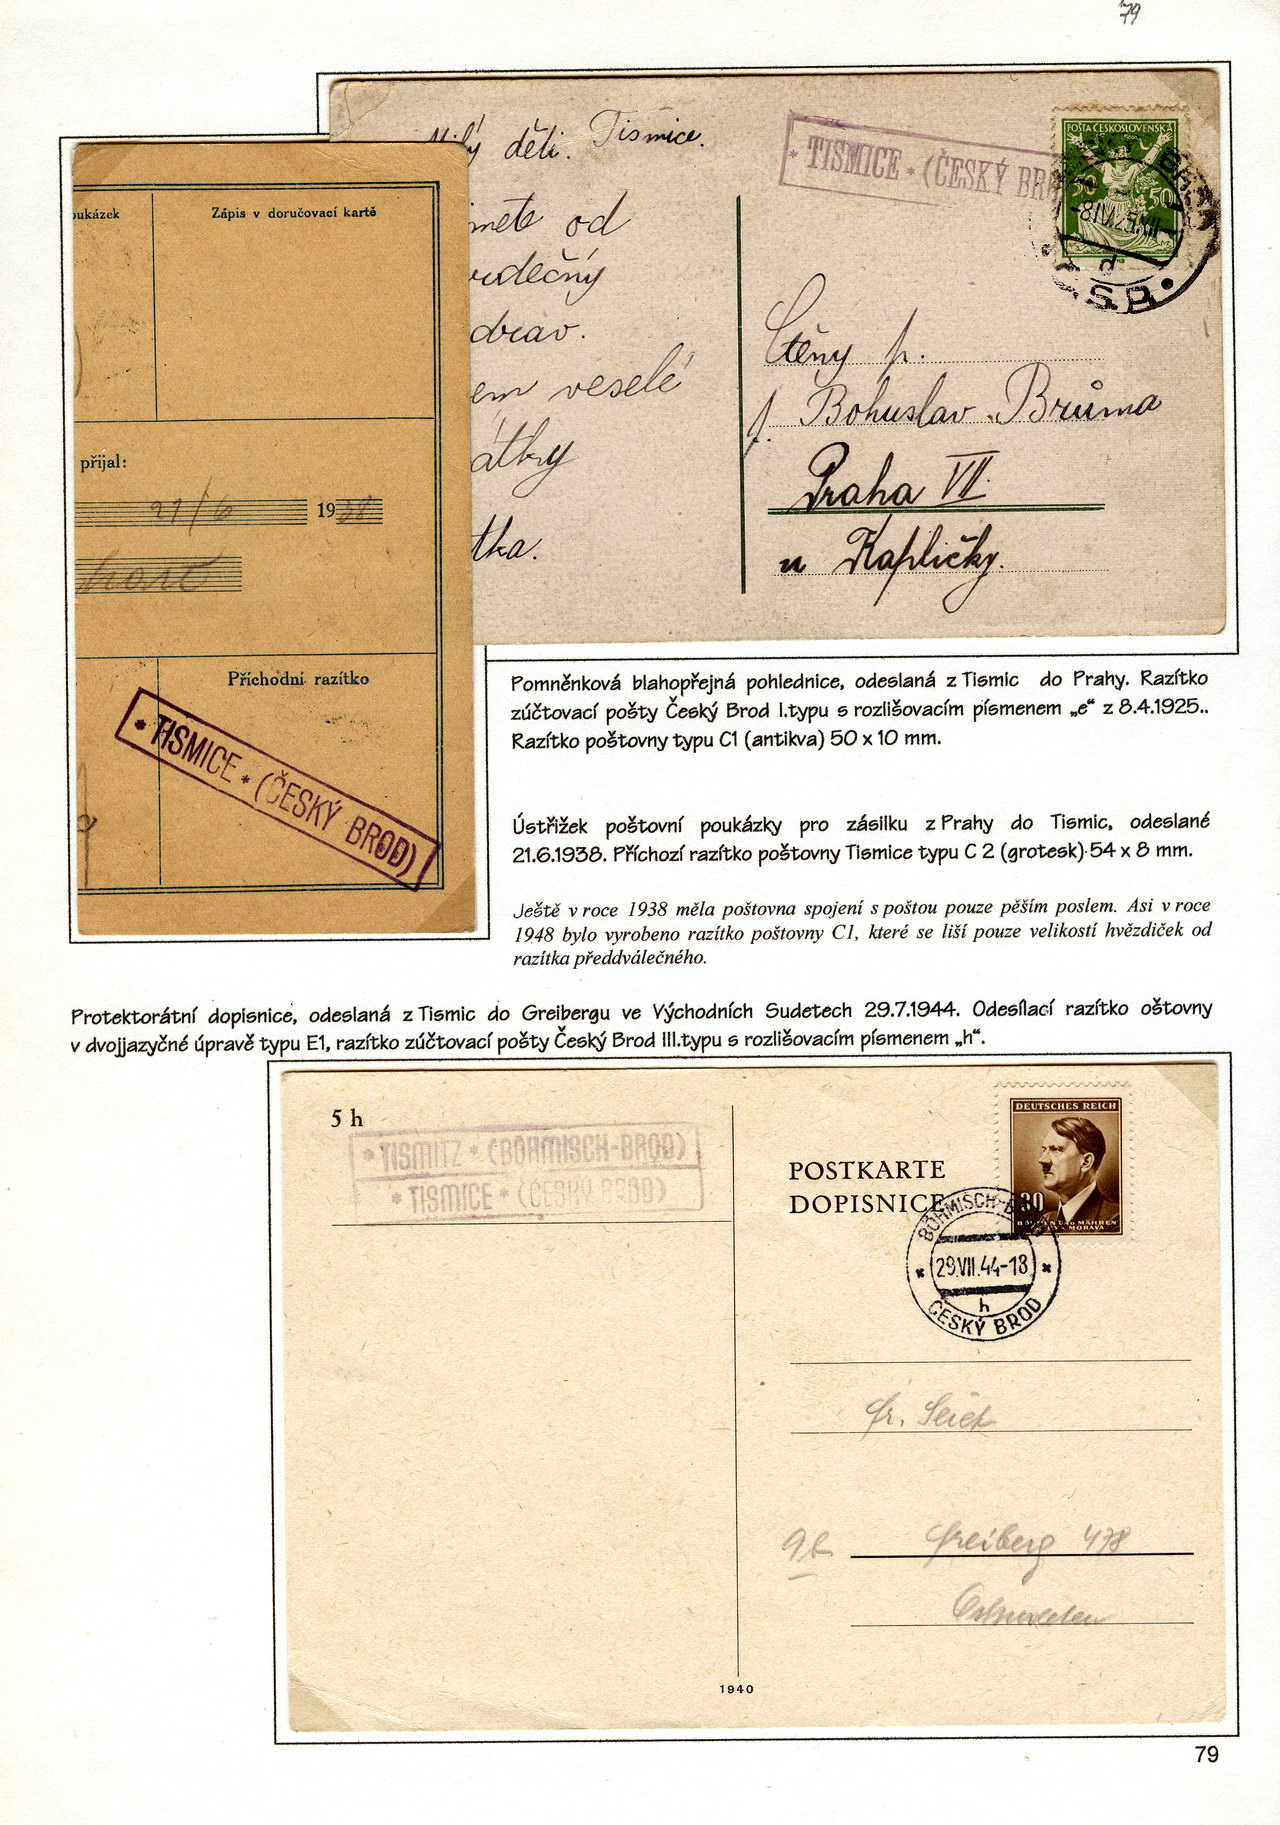 79
Milý děti. Tismice.
mete od
rdečný
drav.
em veselé
átky
tka.
* TISMICE * (ČESKÝ BRO
POŠTA ČESKOSLOVENSKÁ
50 50
-8.IV.25.XII
d
Č.S.R.
Ctěný p.
p. Bohuslav Brůma
Praha VII
u Kapličky.
oukázek
Zápis v doručovací kartě
přijal:
21/6 1938
Příchodní razítko
* TISMICE * (ČESKÝ BROD)
Pomněnková blahopřejná pohlednice, odeslaná z Tismic do Prahy. Razítko
zúčtovací pošty Český Brod I.typu s rozlišovacím písmenem „e“ z 8.4.1925..
Razítko poštovny typu C1 (antikva) 50 x 10 mm.
Ústřižek poštovní poukázky pro zásilku z Prahy do Tismic, odeslané
21.6.1938. Příchozí razítko poštovny Tismice typu C 2 (grotesk) 54 x 8 mm.
Ještě v roce 1938 měla poštovna spojení s poštou pouze pěším poslem. Asi v roce
1948 bylo vyrobeno razítko poštovny C1, které se liší pouze velikostí hvězdiček od
razítka předdválečného.
Protektorátní dopisnice, odeslaná z Tismic do Greibergu ve Východních Sudetech 29.7.1944. Odesílací razítko oštovny
v dvojjazyčné úpravě typu E1, razítko zúčtovací pošty Český Brod III.typu s rozlišovacím písmenem „h“.
5 h
* TISMITZ * (BÖHMISCH-BROD)
* TISMICE * (ČESKÝ BROD)
DEUTSCHES REICH
POSTKARTE
DOPISNICE
80
BÖHMEN UND MÄHREN
BÖHMISCH-BROD
* 29.VII.44-18 *
h
ČESKÝ BROD
Fr.
9b Freiberg 478
Ostsudeten
1940
79